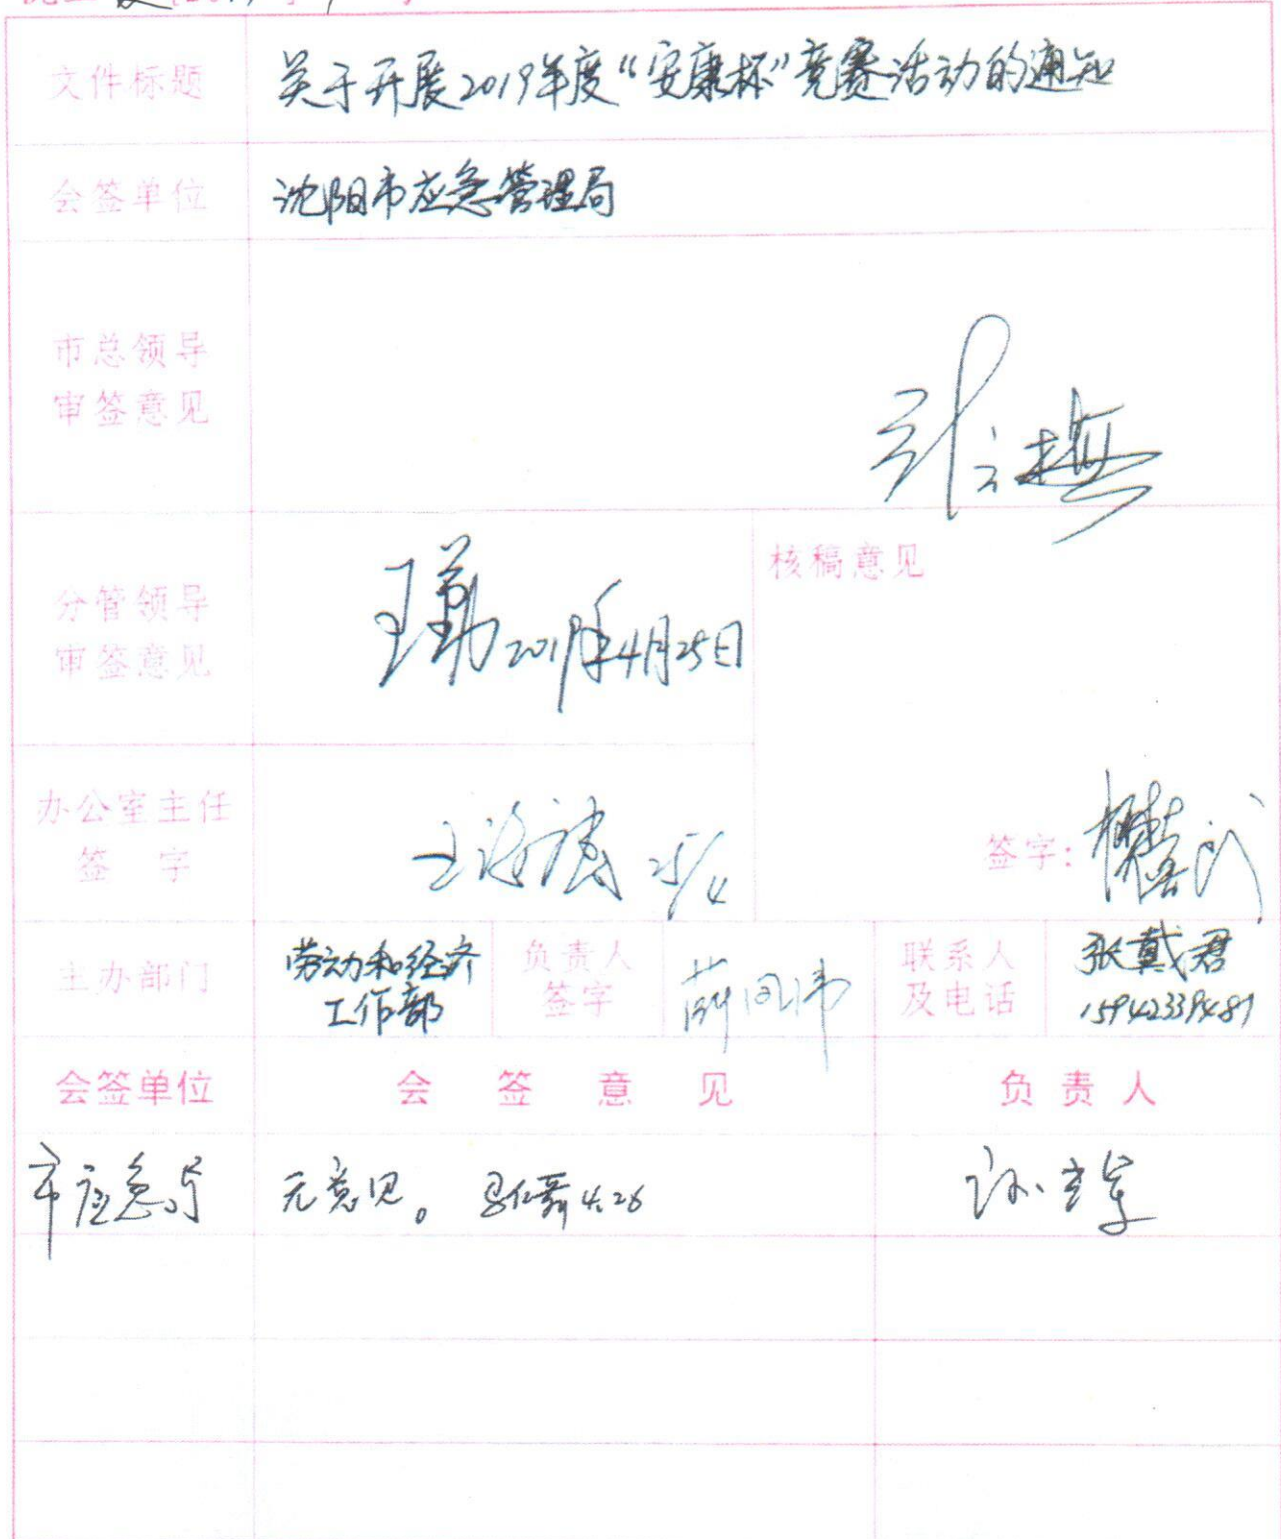 文件标题 关于开展2019年度“安康杯”竞赛活动的通知
会签单位 沈阳市应急管理局
市总领导
审签意见
分管领导
审签意见
王勤 2019年4月25日
核稿意见
办公室主任
签 字
25/4
签字:
主办部门
劳动和经济
工作部
负责人
签字
联系人
及电话
张戴君
15942339481
会签单位 会 签 意 见 负 责 人
市应急局 无意见。 4.26